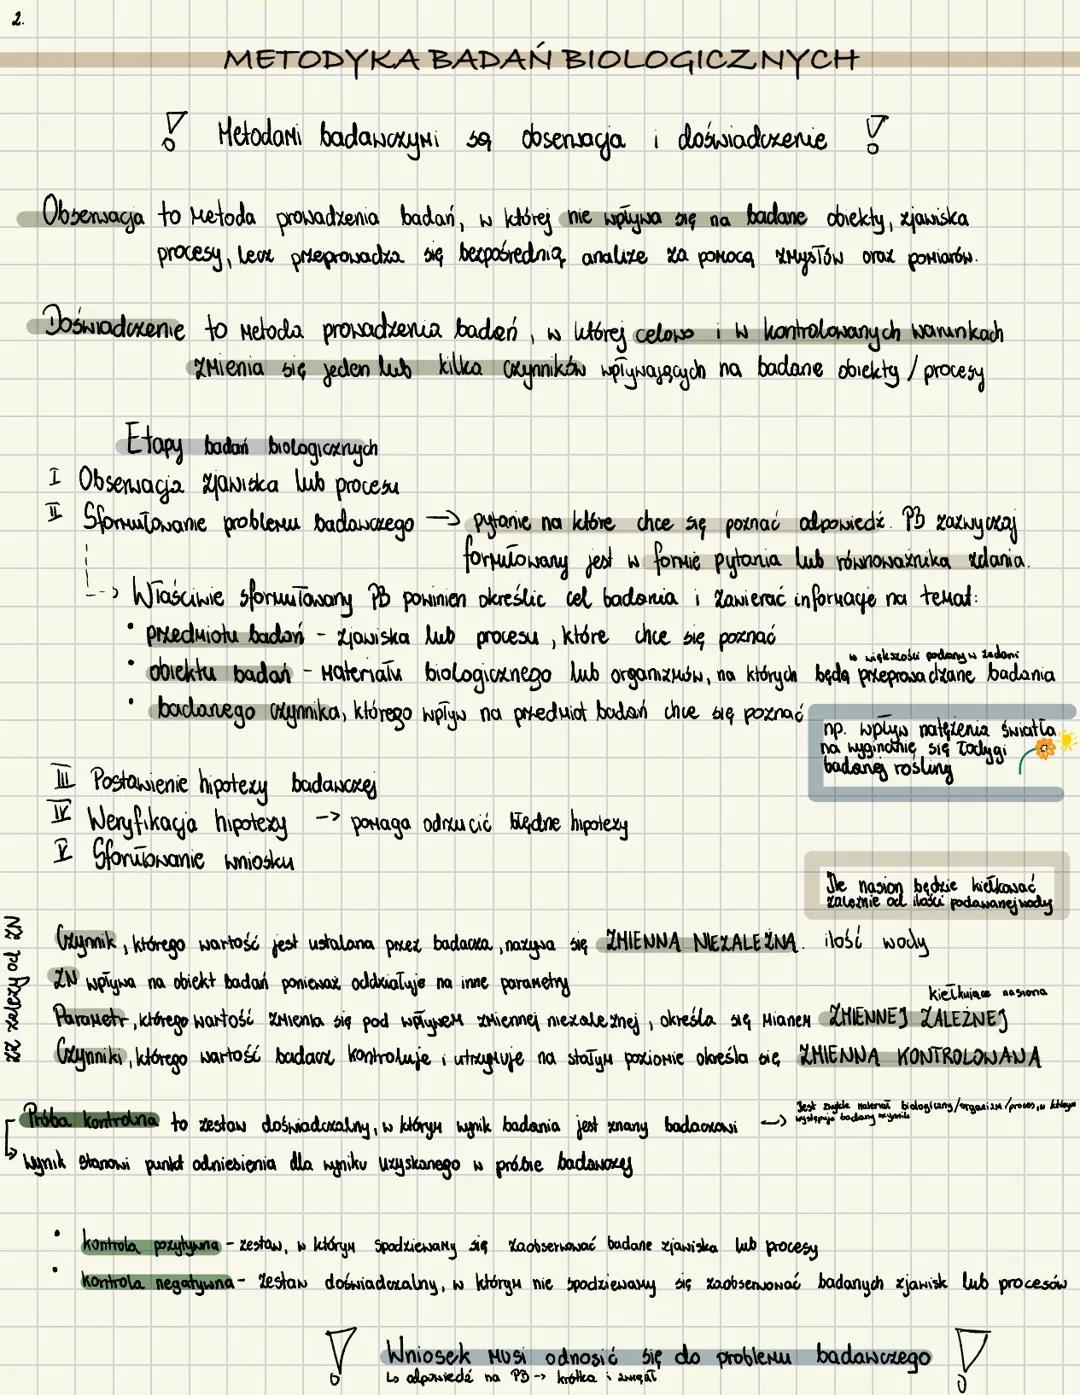 2.
METODYKA BADAŃ BIOLOGICZNYCH
! Metodami badawczymi są obserwacja i doświadczenie !
Obserwacja to metoda prowadzenia badań, w której nie wpływa się na badane obiekty, zjawiska
procesy, lecz przeprowadza się bezpośrednią analize za pomocą zmysłów oraz pomiarów.
Doświadczenie to metoda prowadzenia badań, w której celowo i w kontrolowanych warunkach
zmienia się jeden lub kilka czynników wpływających na badane obiekty / procesy
Etapy badań biologicznych
I Obserwacja zjawiska lub procesu
II Sformułowanie problemu badawczego → pytanie na które chce się poznać odpowiedź. PB zazwyczaj
formułowany jest w formie pytania lub równoważnika zdania.
→ Właściwie sformułowany PB powinien określic cel badania i zawierać informacje na temat:
• przedmiotu badań - zjawiska lub procesu, które chce się poznać
w większości podany w zadani
• obiektu badań - materiału biologicznego lub organizmów, na których będą przeprowadzane badania
• badanego czynnika, którego wpływ na przedmiot badań chce się poznać
np. wpływ natężenia światła
na wyginanie się łodygi
badanej rośliny
III Postawienie hipotezy badawczej
IV Weryfikacja hipotezy → pomaga odrzucić błędne hipotezy
V Sforułowanie wniosku
Ile nasion będzie kiełkować
zależnie od ilości podawanej wody
ZZ zależy od ZN
Czynnik, którego wartość jest ustalana przez badacza, nazywa się ZMIENNĄ NIEZALEŻNĄ. ilość wody
ZN wpływa na obiekt badań ponieważ oddziałuje na inne parametry
kiełkujące nasiona
Parametr, którego wartość zmienia się pod wpływem zmiennej niezależnej, określa się mianem ZMIENNEJ ZALEŻNEJ
Czynniki, którego wartość badacz kontroluje i utrzymuje na stałym poziomie określa się ZMIENNĄ KONTROLOWANĄ
Próba kontrolna to zestaw doświadczalny, w którym wynik badania jest znany badaczowi → Jest zwykle materiał biologiczny/organizm/proces, w którym
występuje badany czynnik
wynik stanowi punkt odniesienia dla wyniku uzyskanego w próbie badawczej
• kontrola pozytywna - zestaw, w którym spodziewamy się zaobserwować badane zjawiska lub procesy
• kontrola negatywna - zestaw doświadczalny, w którym nie spodziewamy się zaobserwować badanych zjawisk lub procesów
! Wniosek musi odnosić się do problemu badawczego !
↳ odpowiedź na PB → krótka i